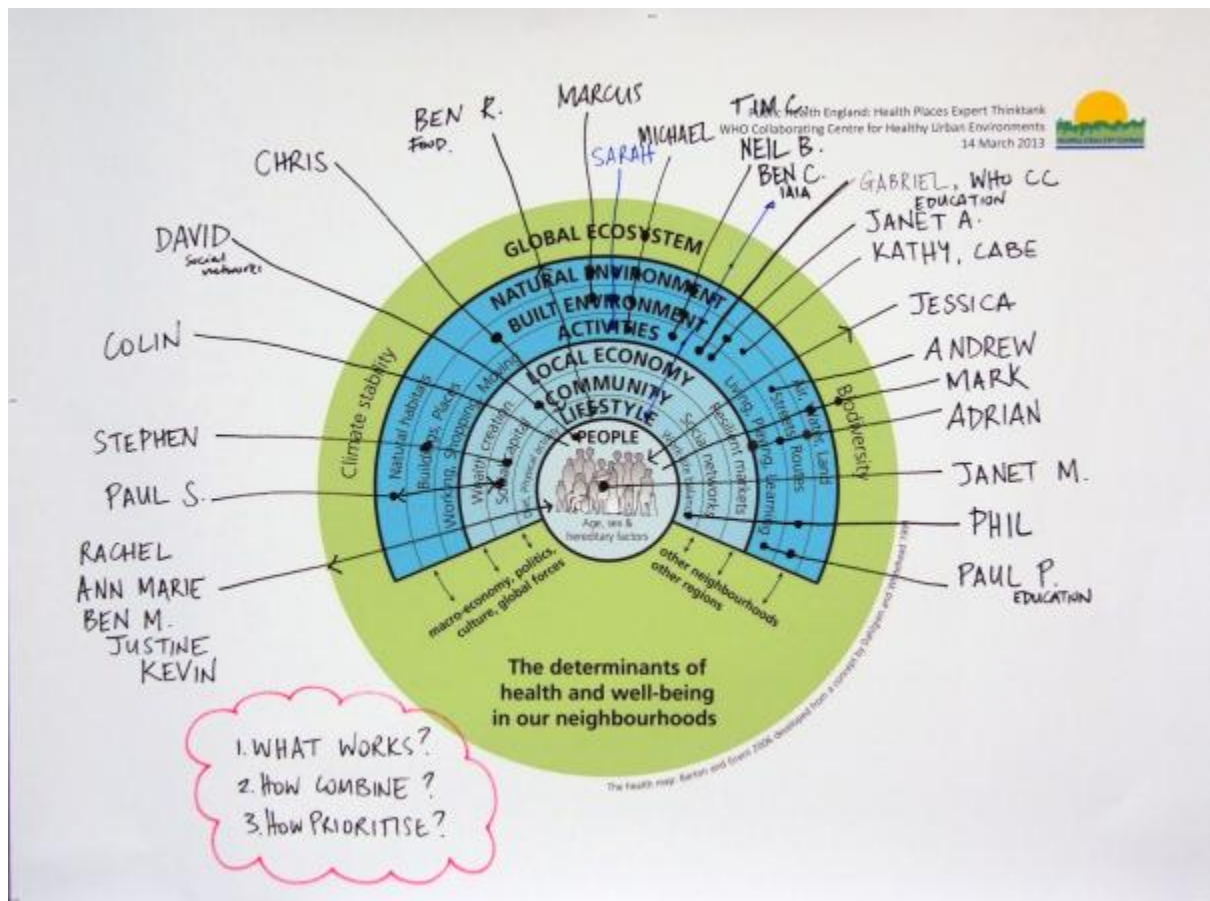 BEN R.
FOOD.
MARCUS
SARAH
MICHAEL
TIM C.
Public Health England: Health Places Expert Thinktank
WHO Collaborating Centre for Healthy Urban Environments
14 March 2013
NEIL B.
BEN C.
IAIA
GABRIEL, WHO CC
EDUCATION
JANET A.
KATHY, CABE
CHRIS
DAVID
Social
networks
COLIN
STEPHEN
PAUL S.
RACHEL
ANN MARIE
BEN M.
JUSTINE
KEVIN
JESSICA
ANDREW
MARK
ADRIAN
JANET M.
PHIL
PAUL P.
EDUCATION
GLOBAL ECOSYSTEM
NATURAL ENVIRONMENT
BUILT ENVIRONMENT
ACTIVITIES
LOCAL ECONOMY
COMMUNITY
LIFESTYLE
PEOPLE
Age, sex &
hereditary factors
Climate stability
Natural habitats
Buildings, Places
Working, Shopping, Moving
Wealth creation
Social capital
Diet, Physical activity
Work-life balance
Social networks
Resilient markets
Living, Playing, Learning
Streets, Routes
Air, Water, Land
Biodiversity
macro-economy, politics,
culture, global forces
other neighbourhoods
other regions
The determinants of
health and well-being
in our neighbourhoods
The health map: Barton and Grant 2006 developed from a concept by Dahlgren and Whitehead
1. WHAT WORKS?
2. HOW COMBINE ?
3. HOW PRIORITISE?